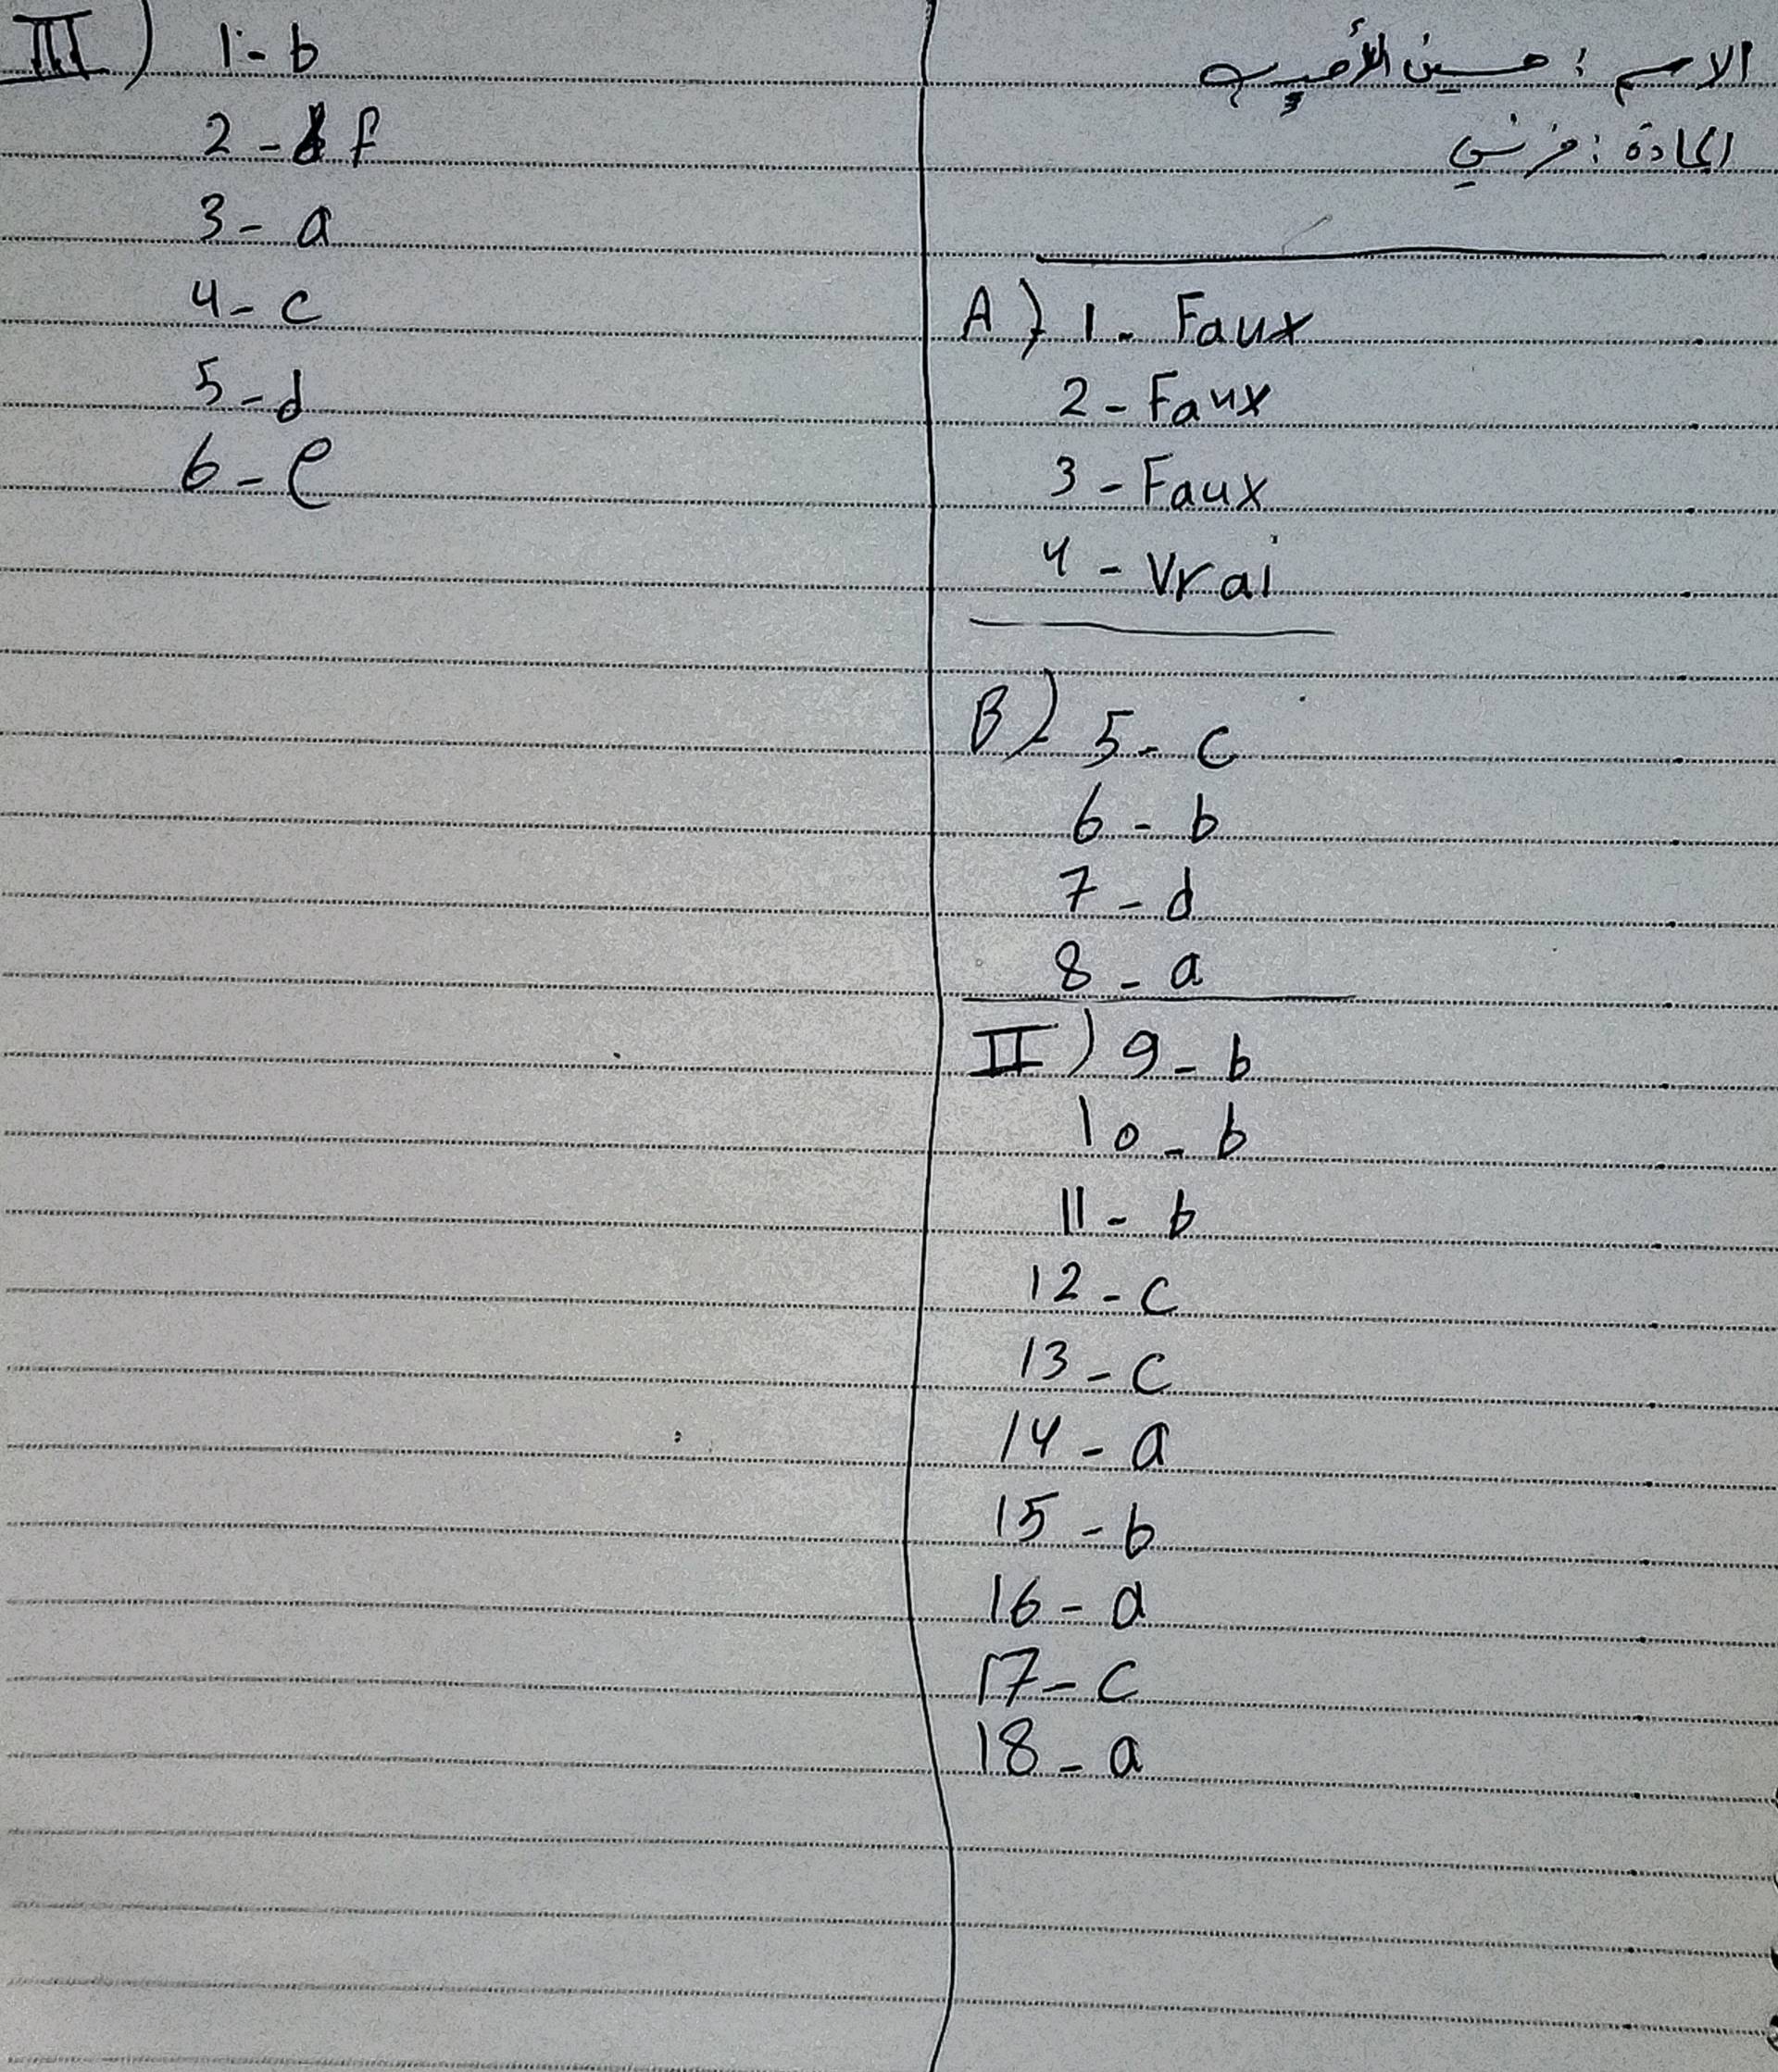 الاسم : حسين الأحيب
المادة : فرنسي
A) 1 - Faux
2 - Faux
3 - Faux
4 - Vrai
B) 5 - c
6 - b
7 - d
8 - a
II) 9 - b
10 - b
11 - b
12 - c
13 - c
14 - a
15 - b
16 - a
17 - c
18 - a
III) 1 - b
2 - f
3 - a
4 - c
5 - d
6 - e